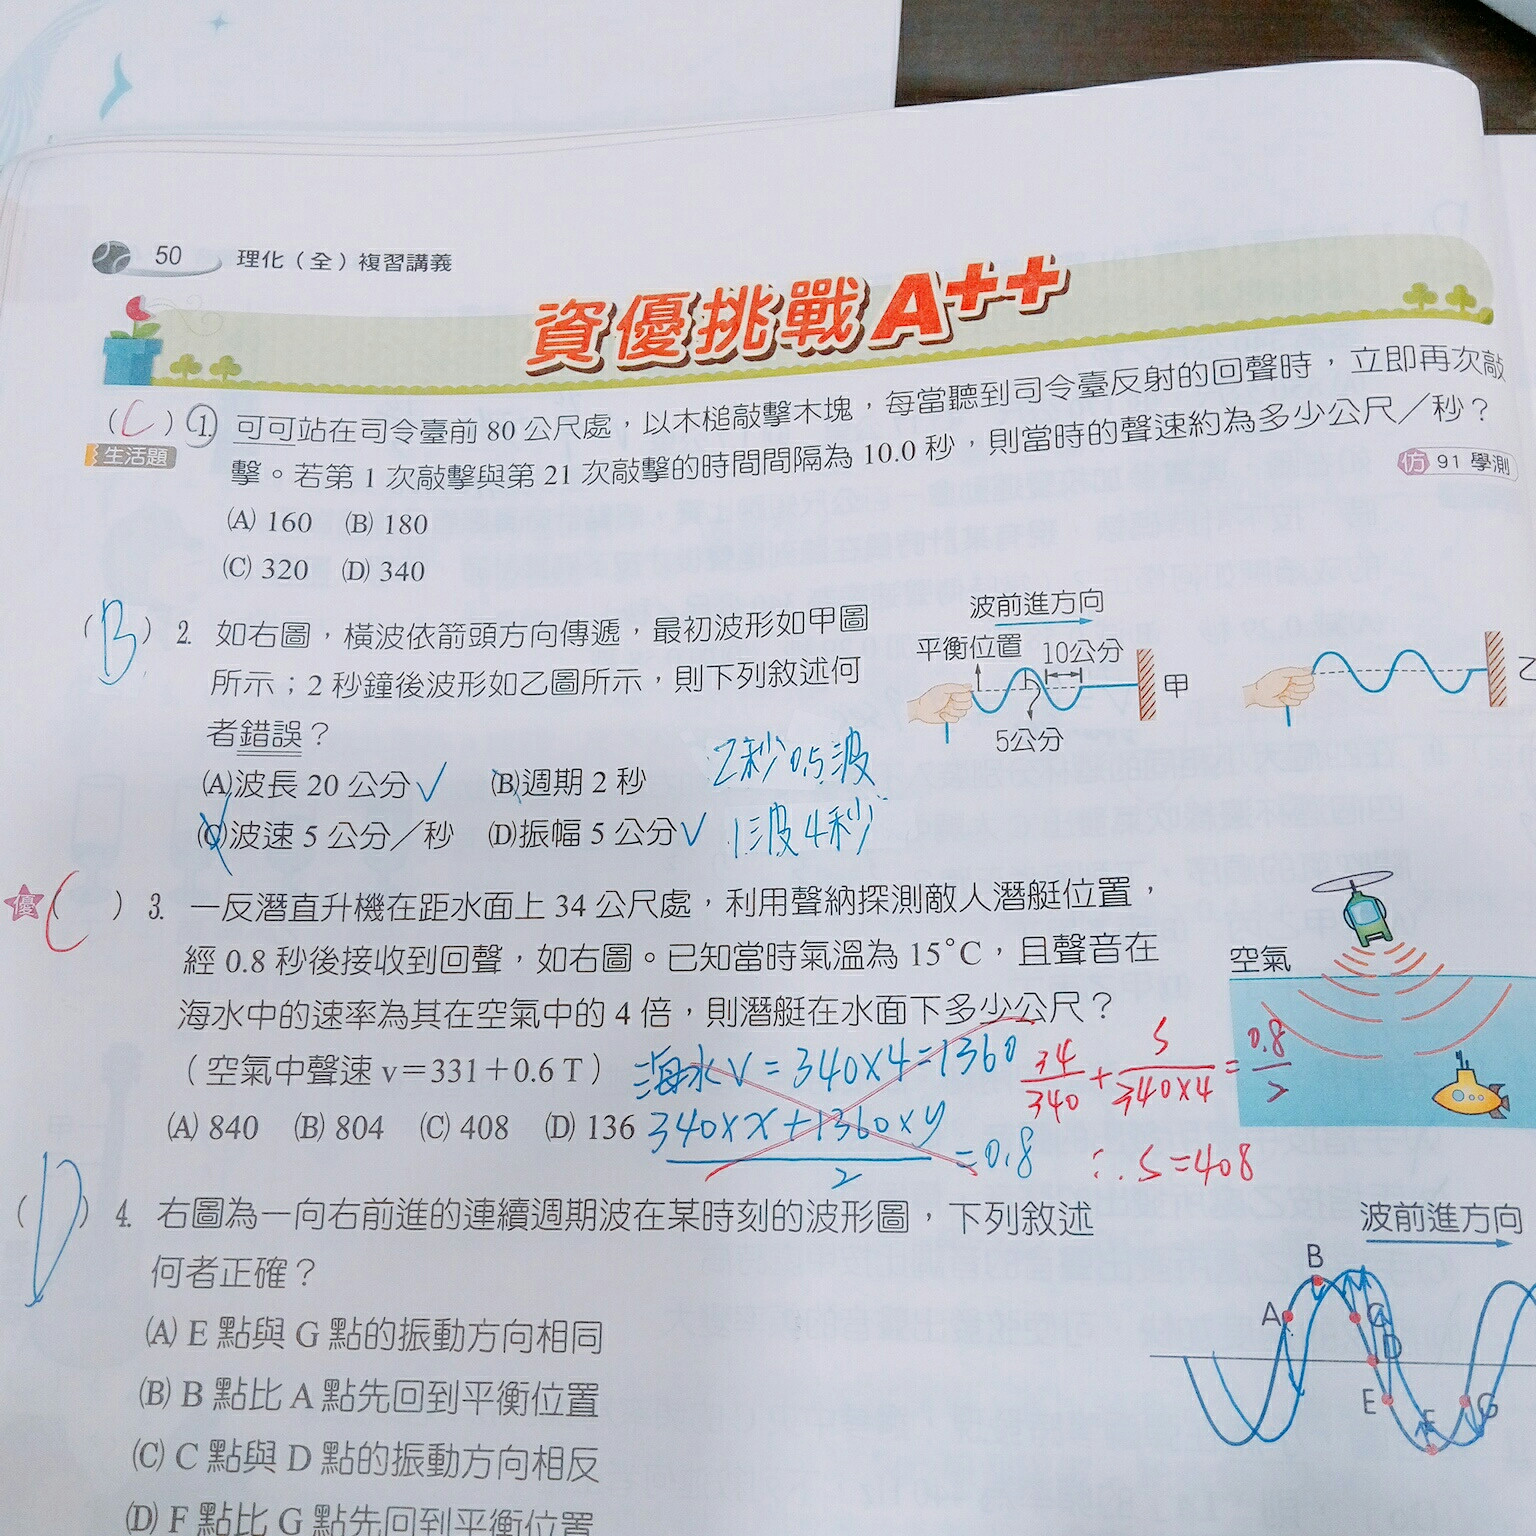 50 理化(全)複習講義
資優挑戰A++
(C) 1. 可可站在司令臺前 80 公尺處，以木槌敲擊木塊，每當聽到司令臺反射的回聲時，立即再次敲
生活題 擊。若第 1 次敲擊與第 21 次敲擊的時間間隔為 10.0 秒，則當時的聲速約為多少公尺／秒？
仿 91 學測
(A) 160 (B) 180
(C) 320 (D) 340
(B) 2. 如右圖，橫波依箭頭方向傳遞，最初波形如甲圖
所示；2 秒鐘後波形如乙圖所示，則下列敘述何
者錯誤？
(A)波長 20 公分✓ (B)週期 2 秒
(C)波速 5 公分／秒 (D)振幅 5 公分✓
2秒0.5波
1波4秒
波前進方向
平衡位置 10公分
甲
5公分
乙
優 (C) 3. 一反潛直升機在距水面上 34 公尺處，利用聲納探測敵人潛艇位置，
經 0.8 秒後接收到回聲，如右圖。已知當時氣溫為 15°C，且聲音在
海水中的速率為其在空氣中的 4 倍，則潛艇在水面下多少公尺？
(空氣中聲速 v＝331＋0.6 T)
(A) 840 (B) 804 (C) 408 (D) 136
空氣
海水 V = 340×4 = 1360
340×x + 1360×y
2
= 0.8
34/340 + S/340×4 = 0.8/2
∴ S = 408
(D) 4. 右圖為一向右前進的連續週期波在某時刻的波形圖，下列敘述
何者正確？
(A) E 點與 G 點的振動方向相同
(B) B 點比 A 點先回到平衡位置
(C) C 點與 D 點的振動方向相反
(D) F 點比 G 點先回到平衡位置
波前進方向
B
A C
D
E F G